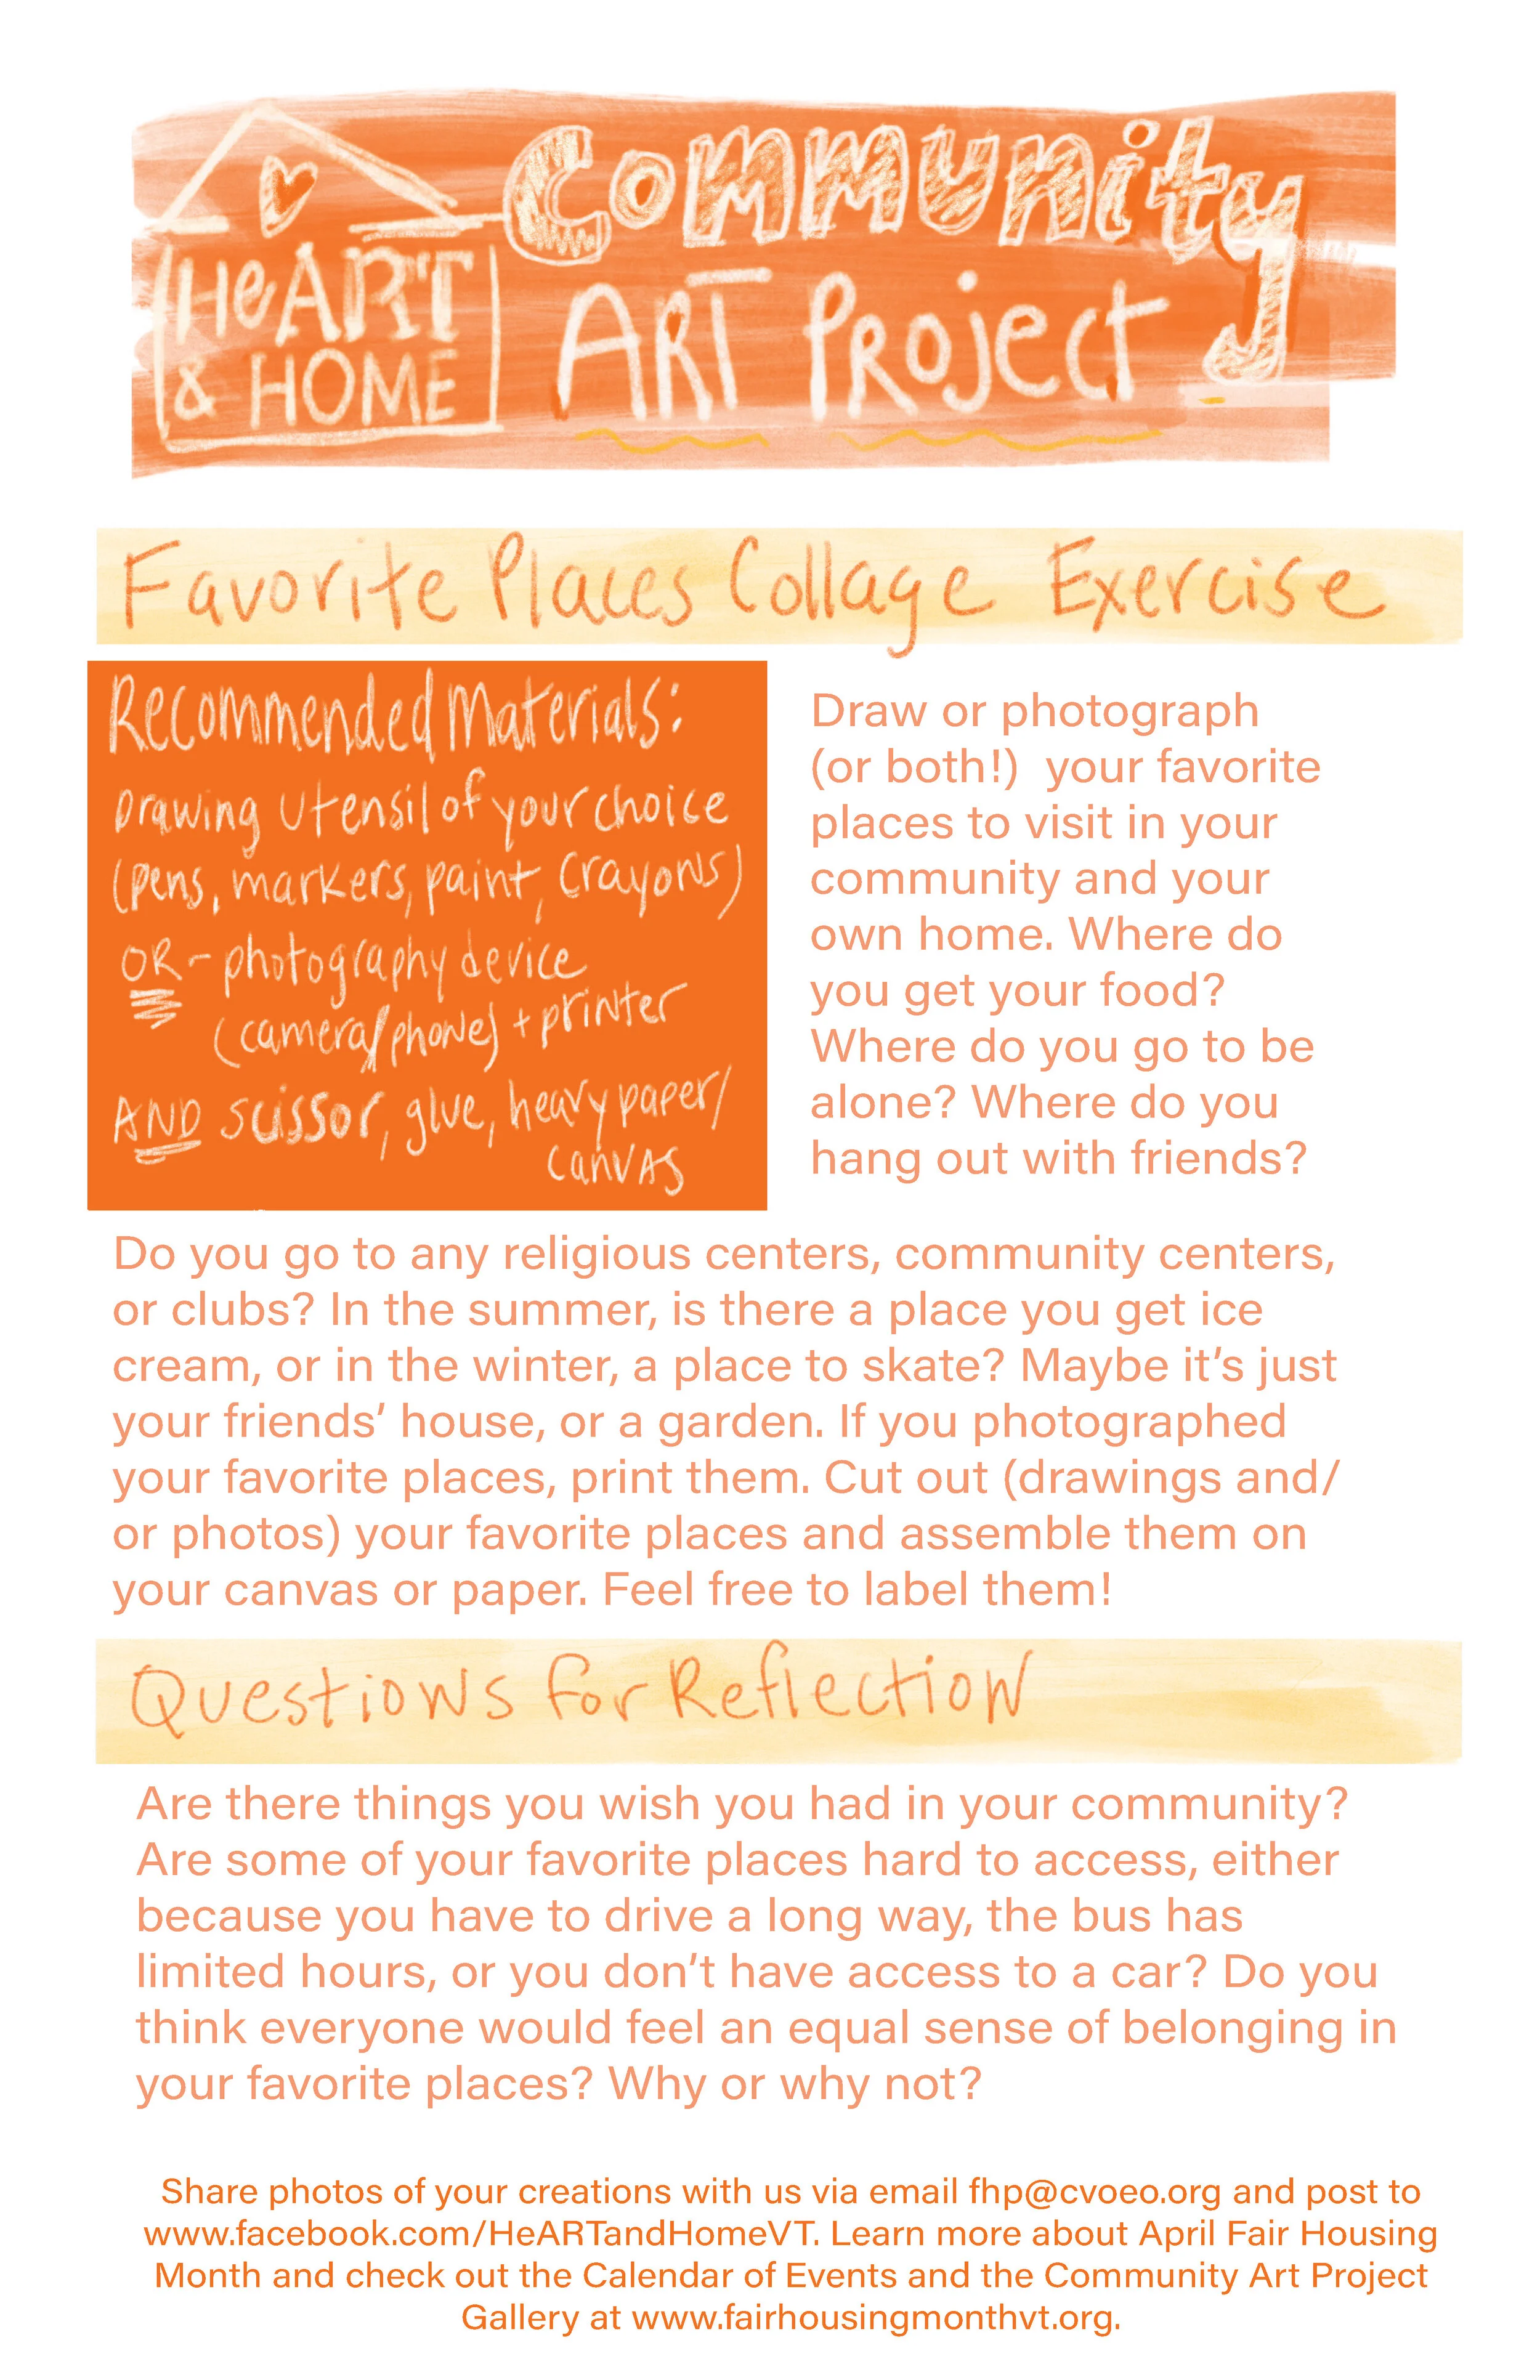 HeART
& HOME
Community
ART Project
Favorite Places Collage Exercise
Recommended Materials:
Drawing utensil of your choice
(pens, markers, paint, crayons)
OR - photography device
(camera/phone) + printer
AND scissor, glue, heavy paper/
canvas
Draw or photograph
(or both!) your favorite
places to visit in your
community and your
own home. Where do
you get your food?
Where do you go to be
alone? Where do you
hang out with friends?
Do you go to any religious centers, community centers,
or clubs? In the summer, is there a place you get ice
cream, or in the winter, a place to skate? Maybe it's just
your friends' house, or a garden. If you photographed
your favorite places, print them. Cut out (drawings and/
or photos) your favorite places and assemble them on
your canvas or paper. Feel free to label them!
Questions for Reflection
Are there things you wish you had in your community?
Are some of your favorite places hard to access, either
because you have to drive a long way, the bus has
limited hours, or you don't have access to a car? Do you
think everyone would feel an equal sense of belonging in
your favorite places? Why or why not?
Share photos of your creations with us via email fhp@cvoeo.org and post to
www.facebook.com/HeARTandHomeVT. Learn more about April Fair Housing
Month and check out the Calendar of Events and the Community Art Project
Gallery at www.fairhousingmonthvt.org.